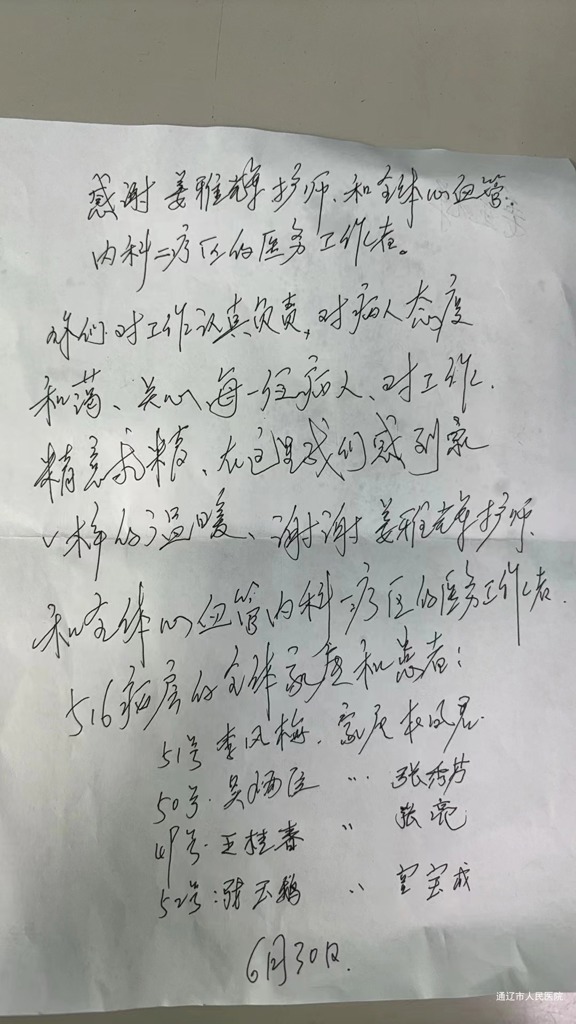 感谢姜雅萍护师.和全体心血管.
内科二疗区的医务工作者。
你们对工作认真负责,对病人态度
和蔼、关心每一位病人、对工作.
精益求精、在这里我们感到家
一样的温暖、谢谢姜雅萍护师.
和全体心血管内科二疗区的医务工作者.
516病房的全体家属和患者:
51号李凤梅.家属
50号.吴 〃 张秀芳
49号.王桂春 〃 张亮
52号:张玉鹤 〃 宝成
6月30日.
通辽市人民医院